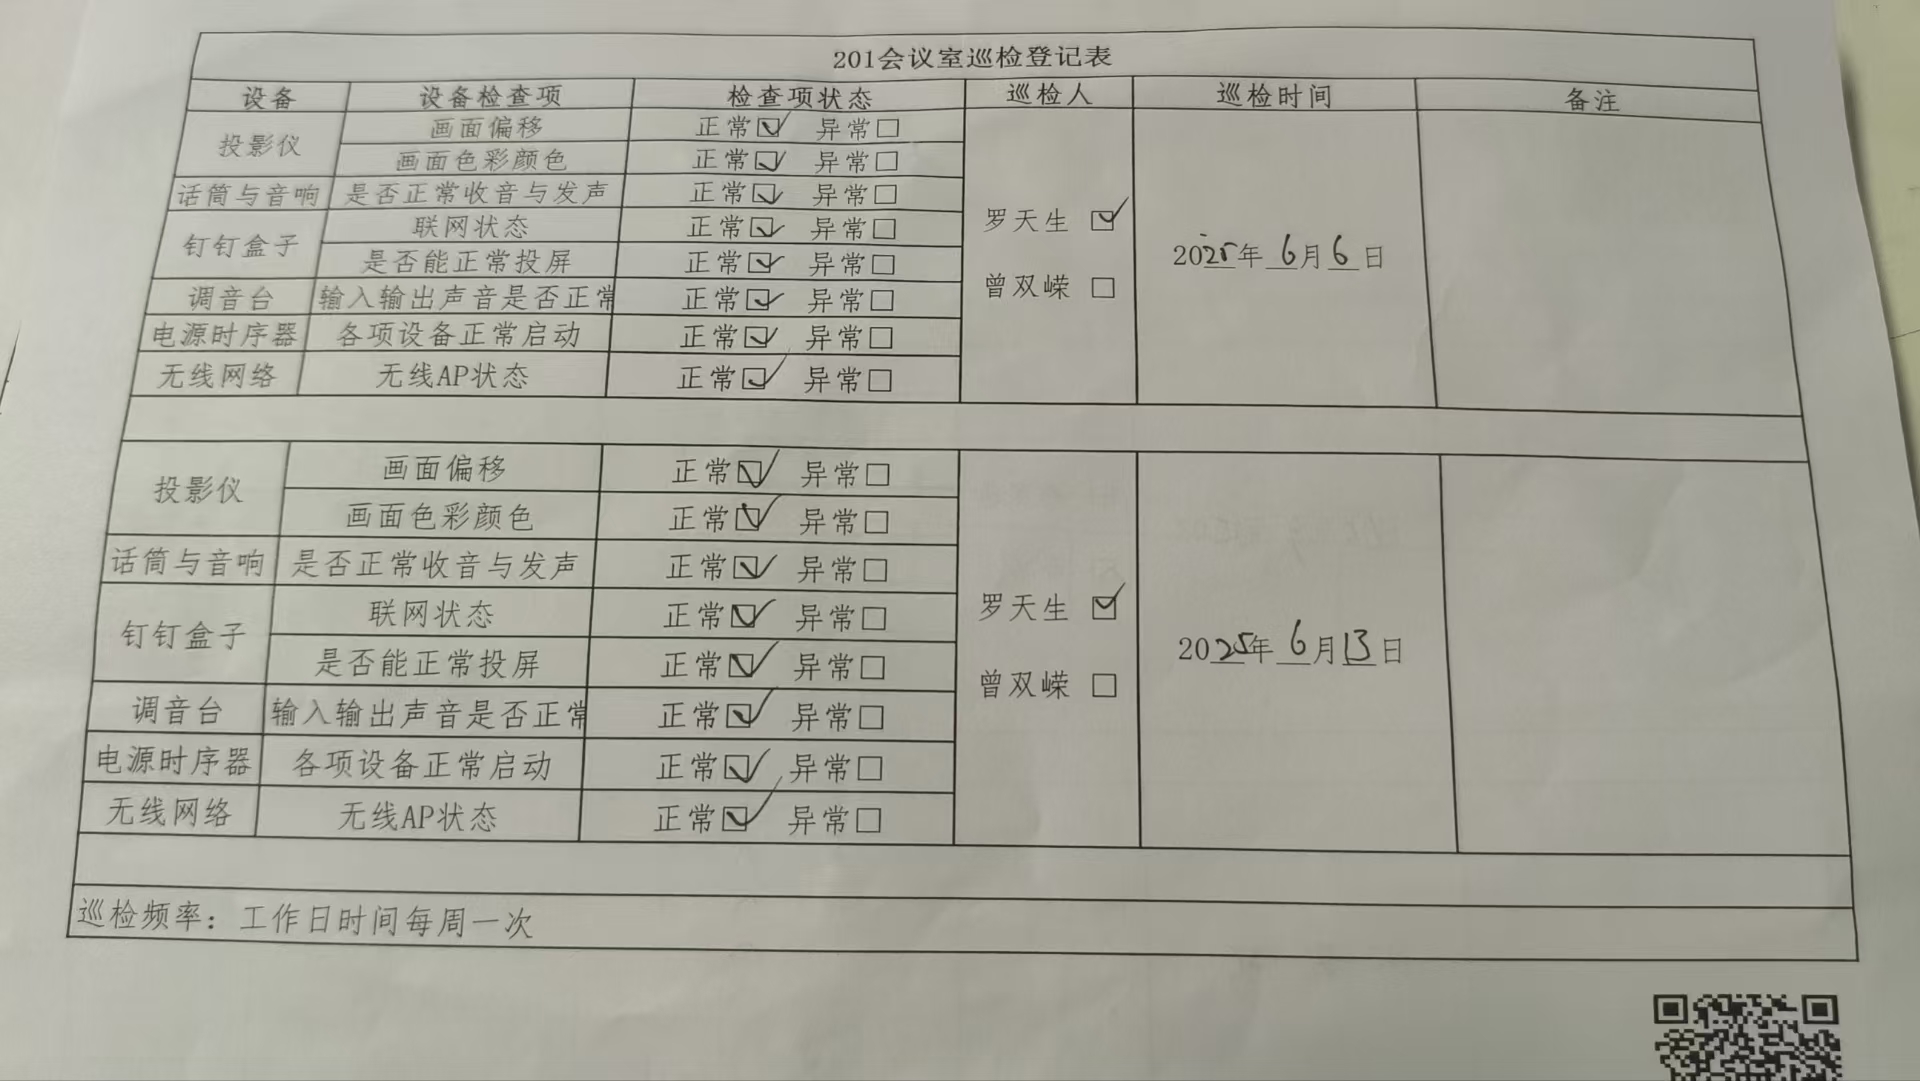 201会议室巡检登记表
设备 设备检查项 检查项状态 巡检人 巡检时间 备注
投影仪 画面偏移 正常☑ 异常□
画面色彩颜色 正常☑ 异常□
话筒与音响 是否正常收音与发声 正常☑ 异常□
钉钉盒子 联网状态 正常☑ 异常□
是否能正常投屏 正常☑ 异常□
调音台 输入输出声音是否正常 正常☑ 异常□
电源时序器 各项设备正常启动 正常☑ 异常□
无线网络 无线AP状态 正常☑ 异常□
罗天生 ☑
曾双嵘 □
2025年6月6日
投影仪 画面偏移 正常☑ 异常□
画面色彩颜色 正常☑ 异常□
话筒与音响 是否正常收音与发声 正常☑ 异常□
钉钉盒子 联网状态 正常☑ 异常□
是否能正常投屏 正常☑ 异常□
调音台 输入输出声音是否正常 正常☑ 异常□
电源时序器 各项设备正常启动 正常☑ 异常□
无线网络 无线AP状态 正常☑ 异常□
罗天生 ☑
曾双嵘 □
2025年6月13日
巡检频率：工作日时间每周一次